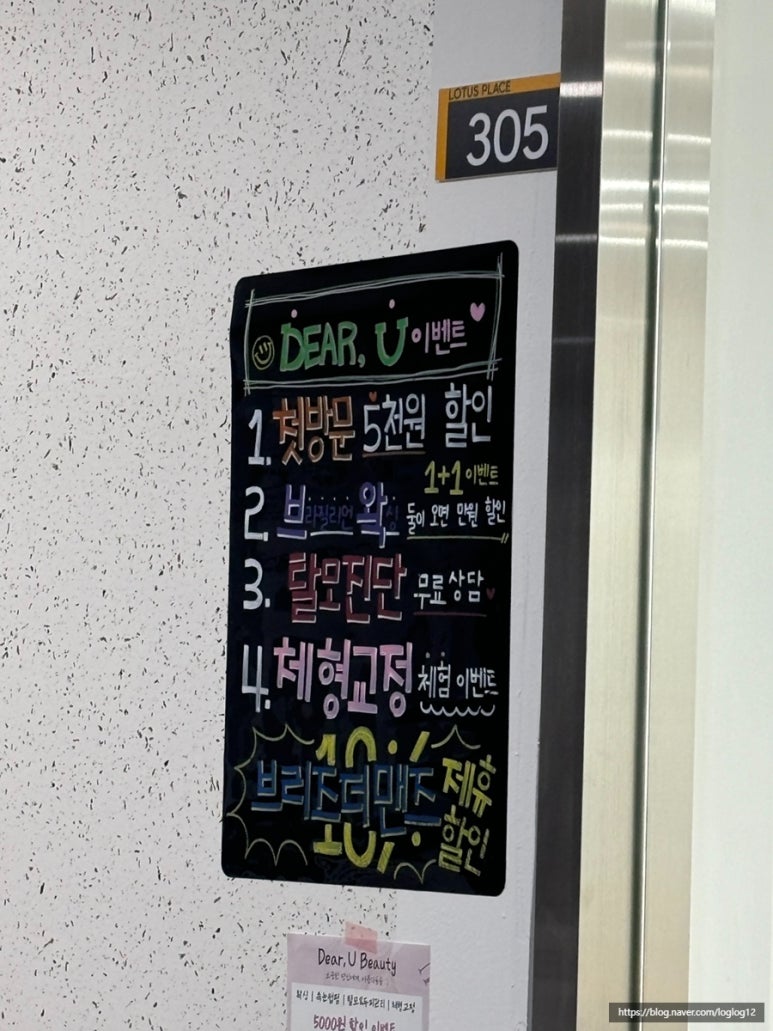 LOTUS PLACE
305
DEAR, U 이벤트
1. 첫방문 5천원 할인
2. 브라질리언 왁싱 1+1 이벤트
둘이 오면 만원 할인
3. 탈모진단 무료상담
4. 체형교정 체험 이벤트
10%
브리즈더맨즈 제휴
할인
Dear, U Beauty
5000원 할인 이벤트
https://blog.naver.com/loglog12